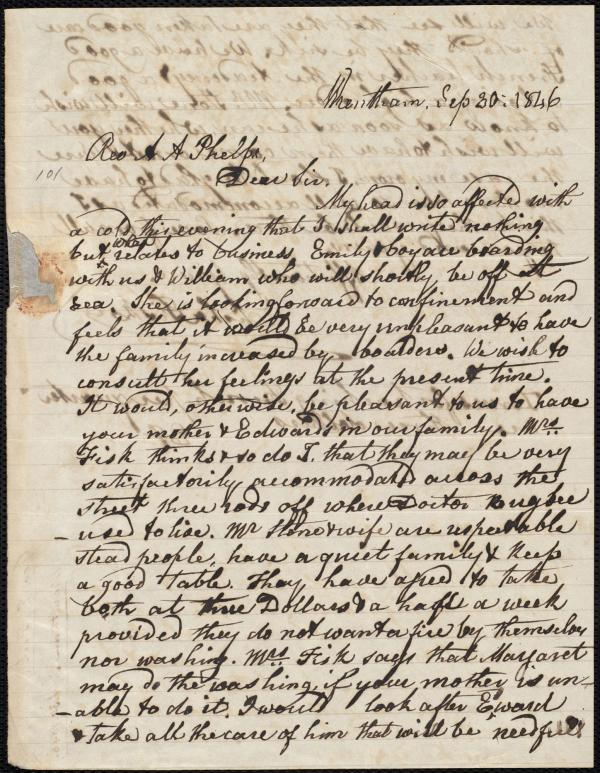 Wrentham, Sep 20: 1846
Rev A A Phelps,
101
Dear Sir,
My head is so affected with
a cold, this evening that I shall write nothing
but what relates to business. Emily & boy are boarding
with us & William who will shortly be off at
sea. She is looking forward to confinement and
feels that it would be very unpleasant to have
the family increased by boarders. We wish to
consult her feelings at the present time.
It would, otherwise, be pleasant to us to have
your mother & Edward in our family. Mrs.
Fisk thinks & so do I, that they may be very
satisfactorily accommodated across the
street three rods off where Doctor
used to live. Mr Stone & wife are respectable
stead people, have a quiet family & keep
a good table. Thay have agred to take
both at three Dollars & a half a week
provided they do not want a fire by themselves
nor washing. Mrs Fisk says that Margaret
may do the washing, if your mother is un-
able to do it. I would look after Edward
& take all the care of him that will be needful